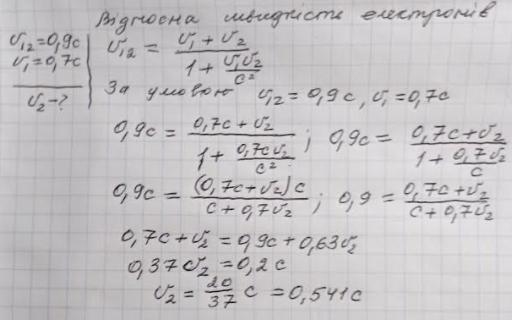 Відносна швидкість електронів
v₁₂=0,9c
v₁=0,7c
v₂-?
v₁₂ = (v₁ + v₂)/(1 + v₁v₂/c²)
За умовою v₁₂=0,9c, v₁=0,7c
0,9c = (0,7c + v₂)/(1 + 0,7cv₂/c²); 0,9c = (0,7c+v₂)/(1 + 0,7v₂/c)
0,9c = (0,7c+v₂)c/(c + 0,7v₂); 0,9 = (0,7c+v₂)/(c+0,7v₂)
0,7c+v₂=0,9c+0,63v₂
0,37v₂=0,2c
v₂ = 20/37 c = 0,541c